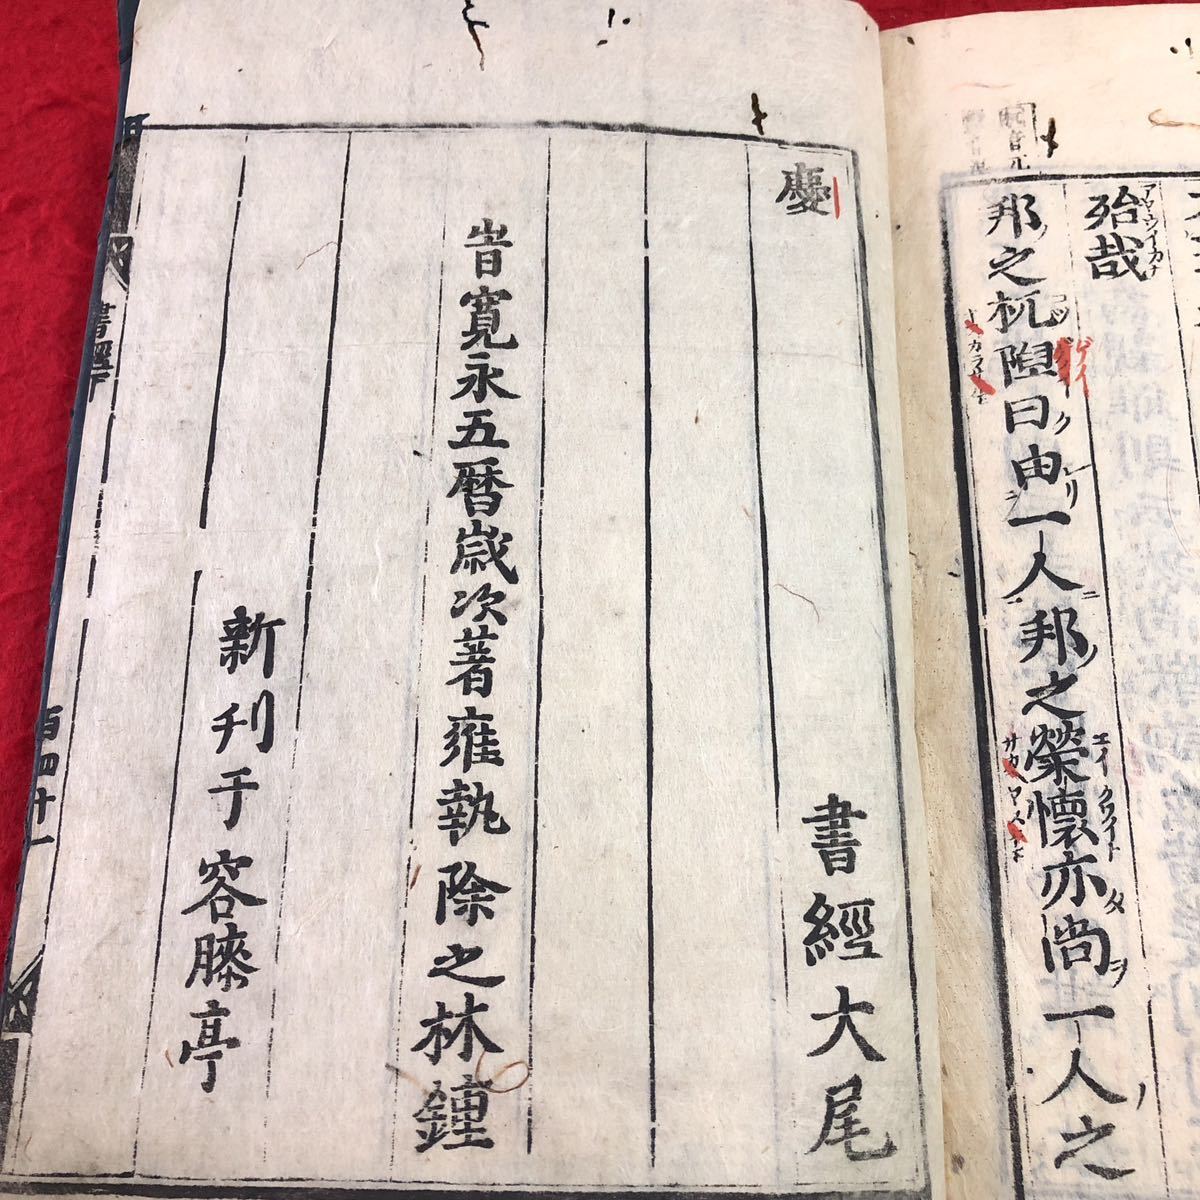 殆哉
邦之杌隉曰由一人邦之榮懷亦尚一人之
慶
書經大尾
旹寛永五暦歳次著雍執除之林鐘
新刊于容膝亭
書經下
百四十一